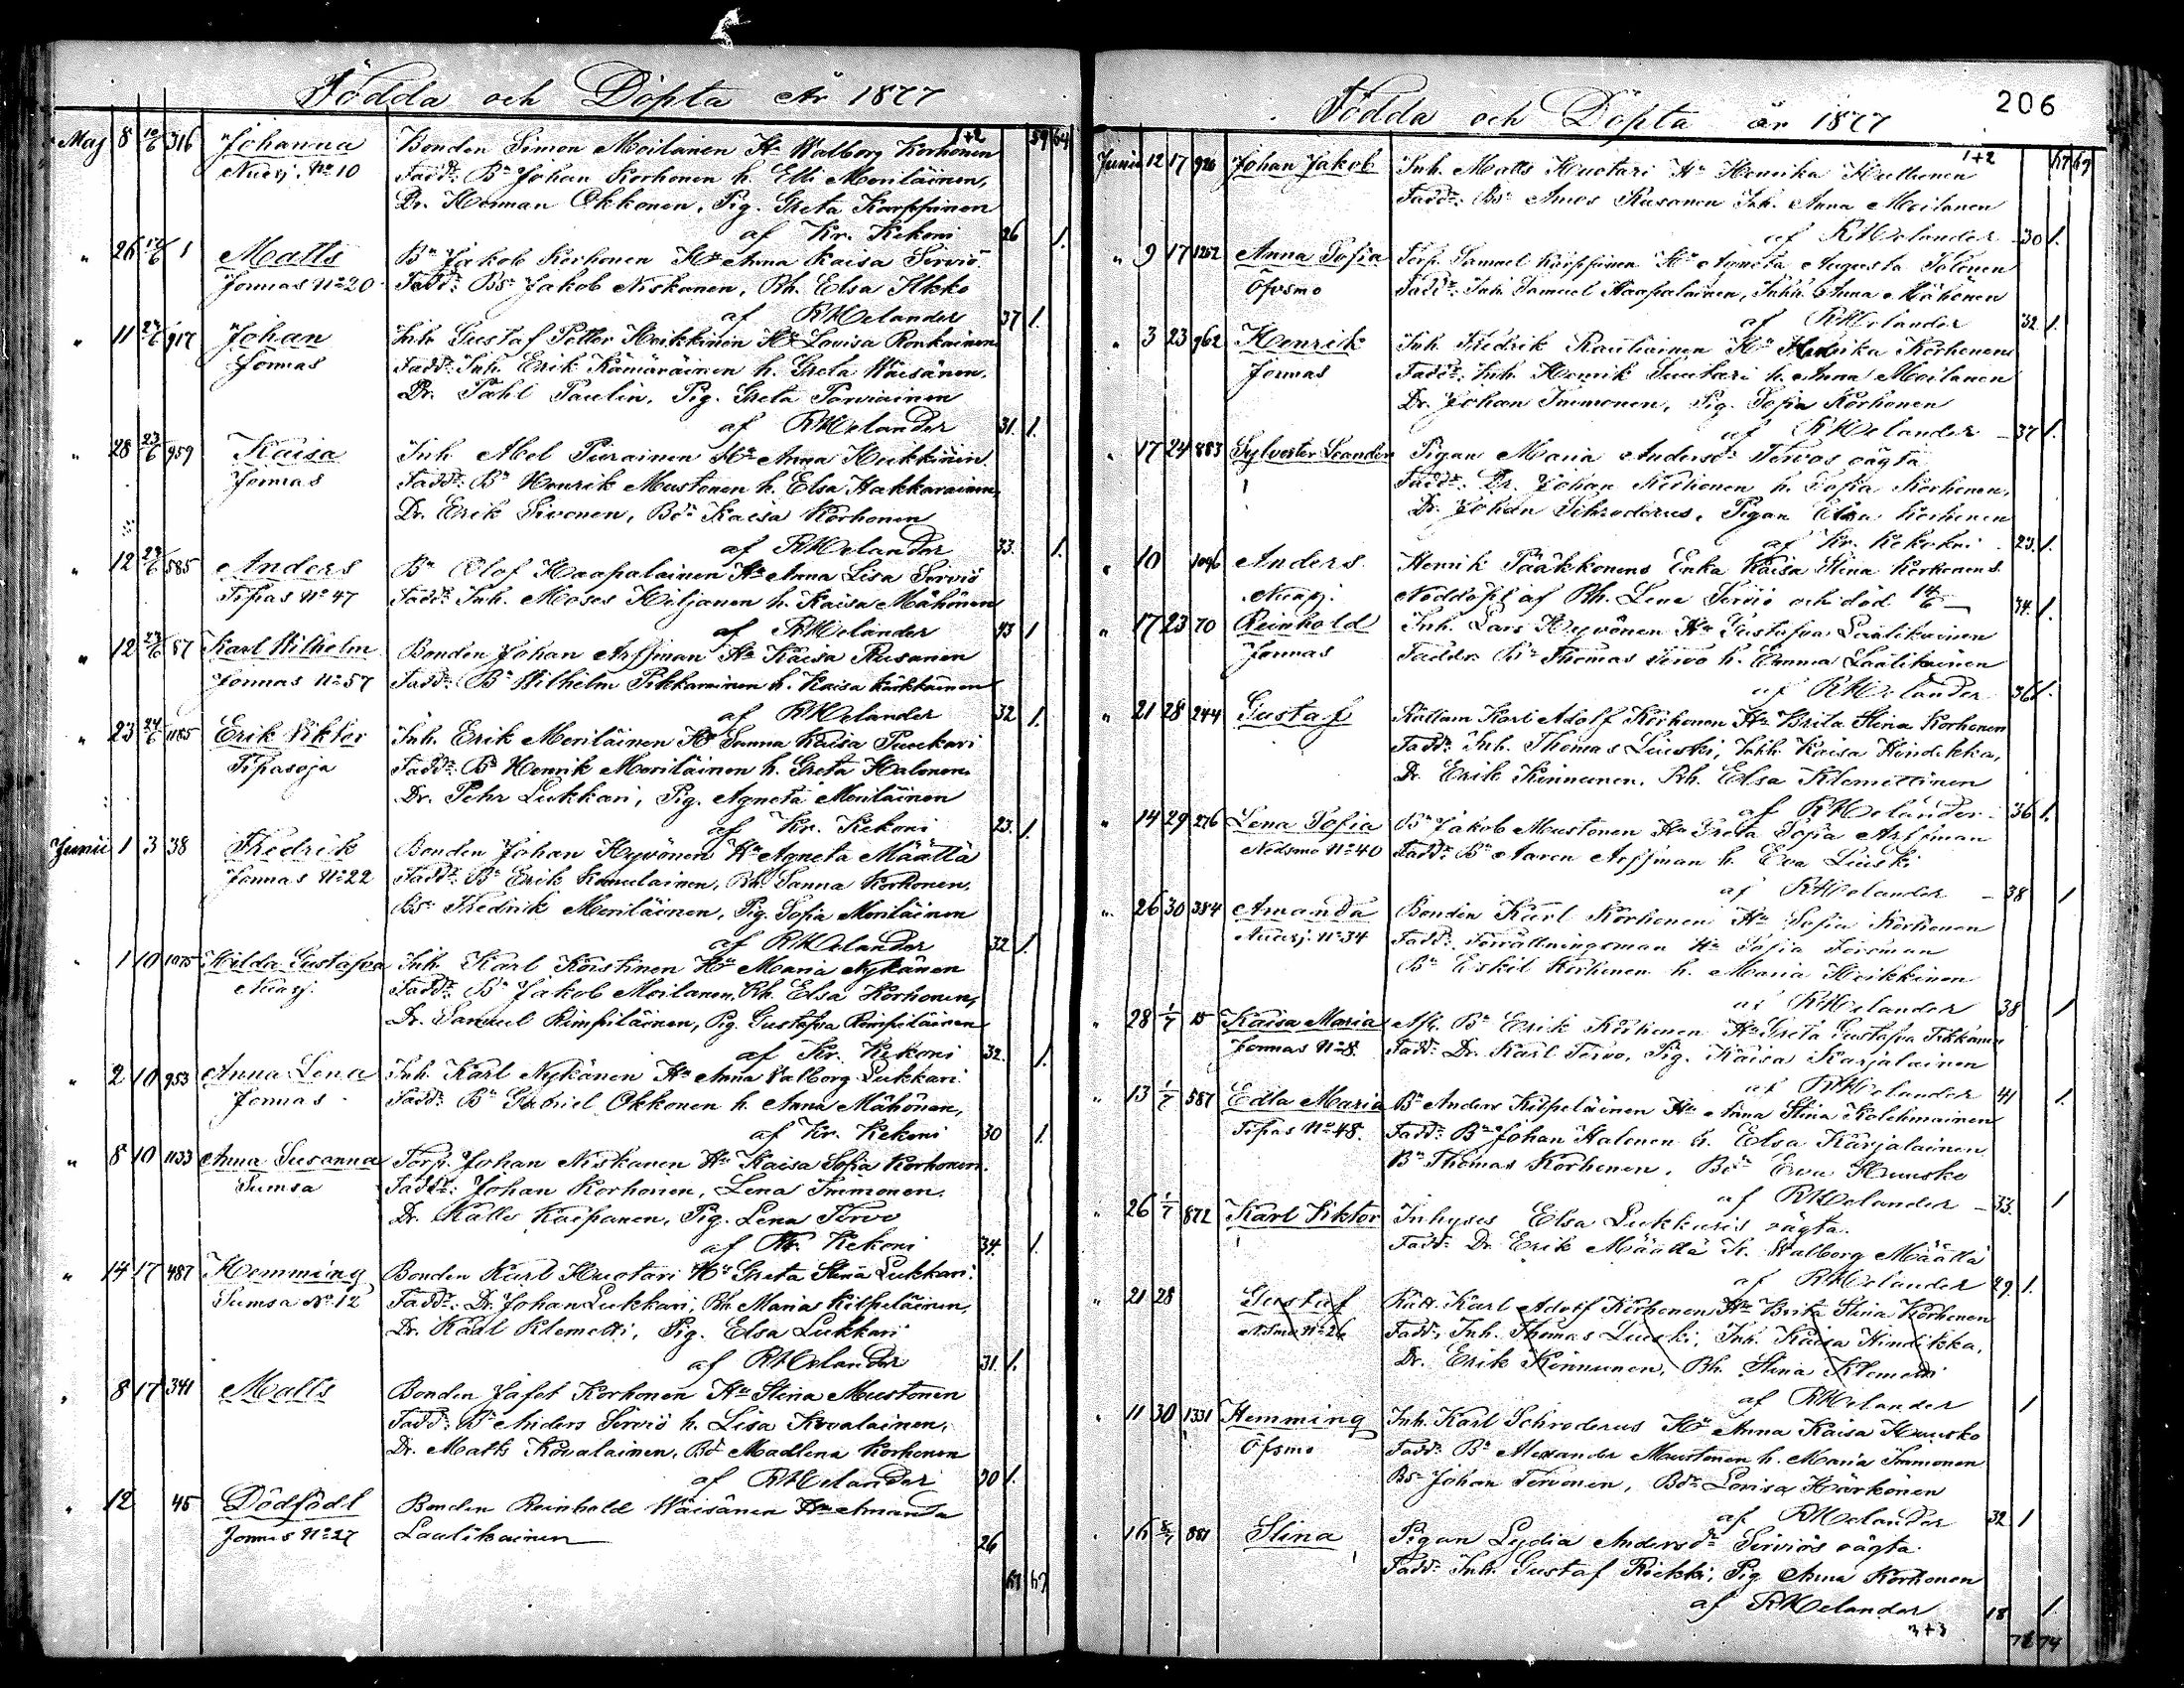 Födda och Döpta År 1877
Maj 8 10/6 316 Johanna Bonden Simon Moilanen Hu Walborg Korhonen 1+2 59 64
Nuasj. No 10 Fadd: Bn Johan Korhonen h. Elli Meriläinen,
Dr. Herman Okkonen, Pig. Greta Karppinen
af Kr. Kekoni 26 1.
" 26 10/6 1 Matts Bn Jakob Korhonen Hu Anna Kaisa Serviö
Jormas No 20 Fadd: Bs Jakob Niskanen, Bh. Elsa Ilkko
af RHelander 37 1.
" 11 23/6 917 Johan Inh. Gustaf Petter Heikkinen Hu Lovisa Ronkainen
Jormas Fadd: Inh. Erik Kämäräinen h. Greta Wäisänen,
Dr. Påhl Paulin, Pig. Greta Parviainen
af RHelander 31. 1.
" 28 23/6 959 Kaisa Inh. Abel Piirainen Hu Anna Heikkinen
Jormas Fadd: Bn Henrik Mustonen h. Elsa Hakkarainen,
Dr. Erik Sivonen, Bdr Kaisa Korhonen
af RHelander 33. 1.
" 12 23/6 585 Anders Bn Olof Haapalainen Hu Anna Lisa Serviö
Tipas No 47 Fadd: Inh. Moses Hiljanen h. Kaisa Mähönen
af RHelander 43 1
" 12 23/6 87 Karl Wilhelm Bonden Johan Arffman Hu Kaisa Rusanen
Jormas No 57 Fadd: Bn Wilhelm Pikkarainen h. Kaisa Kärkkäinen
af RHelander 32 1.
" 23 24/6 1185 Erik Viktor Inh. Erik Meriläinen Hu Sanna Kaisa Puukari
Tipasoja Fadd: Bn Henrik Meriläinen h. Greta Halonen
Dr. Pehr Lukkari, Pig. Agneta Meriläinen
af Kr. Kekoni 23. 1.
Junii 1 3 38 Fredrik Bonden Johan Hyvönen Hu Agneta Määttä
Jormas No 22 Fadd: Bn Erik Kemulainen, Bh. Sanna Korhonen,
Bs Fredrik Meriläinen, Pig. Sofia Meriläinen
af RHelander 32 1.
" 1 10 1075 Hilda Gustafva Inh. Karl Koistinen Hu Maria Nykänen
Nuasj. Fadd: Bn Jakob Moilanen, Bh. Elsa Korhonen,
Dr. Samuel Rimpiläinen, Pig. Gustafva Rimpiläinen
af Kr. Kekoni 32. 1.
" 2 10 953 Anna Lena Inh. Karl Nykänen Hu Anna Valborg Lukkari
Jormas Fadd: Bn Gabriel Okkonen h. Anna Mähönen,
af Kr. Kekoni 30 1.
" 8 10 1133 Anna Susanna Torp. Johan Niskanen Hu Kaisa Sofia Korhonen
Sumsa Fadd: Johan Korhonen, Lena Immonen,
Dr. Kalle Kaipanen, Pig. Lena Tervo
af Kr. Kekoni 34. 1.
" 14 17 487 Hemming Bonden Karl Huotari Hu Greta Stina Lukkari
Sumsa No 12 Fadd: Dr. Johan Lukkari, Bh. Maria Kilpeläinen,
Dr. Karl Klemetti, Pig. Elsa Lukkari
af RHelander 31. 1.
" 8 17 341 Matts Bonden Jafet Korhonen Hu Stina Mustonen
Fadd: Bn Anders Serviö h. Lisa Kovalainen,
Dr. Matts Kovalainen, Bdr Madlena Korhonen
af RHelander 20 1.
" 12 45 Dödfödt Bonden Reinhold Wäisänen Hu Amanda
Jormas No 27 Laatikainen 26
67 69
206
Födda och Döpta år 1877
Junii 12 17 926 Johan Jakob Inh. Matts Huotari Hu Henrika Hultunen 1+2 67 69
Fadd: Bs Amos Rusanen Inh. Anna Moilanen
af RHelander 30 1.
" 9 17 1252 Anna Sofia Torp. Samuel Karppinen Hu Agneta Augusta Tolonen
Öfvsmo Fadd: Inh. Samuel Haapalainen, Inh. Anna Mähönen
af RHelander 32. 1.
" 3 23 962 Henrik Inh. Fredrik Rautiainen Hu Henrika Korhonen
Jormas Fadd: Inh. Henrik Huotari h. Anna Moilanen
Dr. Johan Immonen, Pig. Sofia Korhonen
af RHelander 37 1.
" 17 24 883 Sylvester Leander Pigan Maria Andersdr Tervos oägta
Fadd: Dr. Johan Korhonen h. Sofia Korhonen,
Dr. Johan Schroderus, Pigan Elsa Korhonen
af Kr. Kekoni 23. 1.
" 10 1096 Anders Henrik Pääkkönens Enka Kaisa Stina Korhonens
Nuasj. Nöddöpt af Bh. Lena Serviö och död 14/6 44. 1.
" 17 23 70 Reinhold Inh. Lars Hyvönen Hu Gustafva Laatikainen
Jormas Faddr. Bn Thomas Tervo h. Emma Laatikainen
af RHelander 36 1.
" 21 28 244 Gustaf Rättarn Karl Adolf Korhonen Hu Brita Stina Korhonen
Fadd: Inh. Thomas Liuski, Inh. Kaisa Hindikka,
Dr. Erik Kinnunen, Bh. Elsa Klemettinen
af RHelander 36 1.
" 14 29 276 Lena Sofia Bn Jakob Mustonen Hu Greta Sofia Arffman
Nedsmo No 40 Fadd: Bn Aaron Arffman h. Eva Liuski
af RHelander 38 1
" 26 30 384 Amanda Bonden Karl Korhonen Hu Sofia Korhonen
Nuasj. No 34 Fadd: Förrättningsman Hu Sofia
Bn Eskil Korhonen h. Maria Heikkinen
af RHelander 38 1
" 28 1/7 15 Kaisa Maria Afl. Bn Erik Korhonen Hu Greta Gustafva Tikkanen
Jormas No 8. Fadd: Dr. Karl Tervo, Pig. Kaisa Karjalainen
af RHelander 41 1.
" 13 1/7 587 Edla Maria Bn Anders Kilpeläinen Hu Anna Stina Kolehmainen
Tipas No 48. Fadd: Bn Johan Halonen h. Elsa Karjalainen
Bn Thomas Korhonen, Bdr Eva Huusko
af RHelander 33. 1
" 26 1/7 872 Karl Viktor Inhyses Elsa Lukkaris oägta.
Fadd: Dr. Erik Määttä h. Walborg Määttä
af RHelander 29. 1.
" 21 28 Gustaf Rätt. Karl Adolf Korhonen Hu Brita Stina Korhonen
N.Smo No 26 Fadd: Inh. Thomas Liuski, Inh. Kaisa Hindikka,
Dr. Erik Kinnunen, Bh. Stina Klemetti
af RHelander 1
" 11 30 1331 Hemming Inh. Karl Schroderus Hu Anna Kaisa Huusko
Öfsmo Fadd: Bn Alexander Mustonen h. Maria Immonen
Bs Johan Tervonen, Bdr Lovisa Härkönen
af RHelander 32 1
" 16 8/7 881 Stina Pigan Lydia Andersdr Serviös oägta
Fadd: Inh. Gustaf Riekki, Pig. Anna Korhonen
af RHelander 18 1.
3+3 76 74